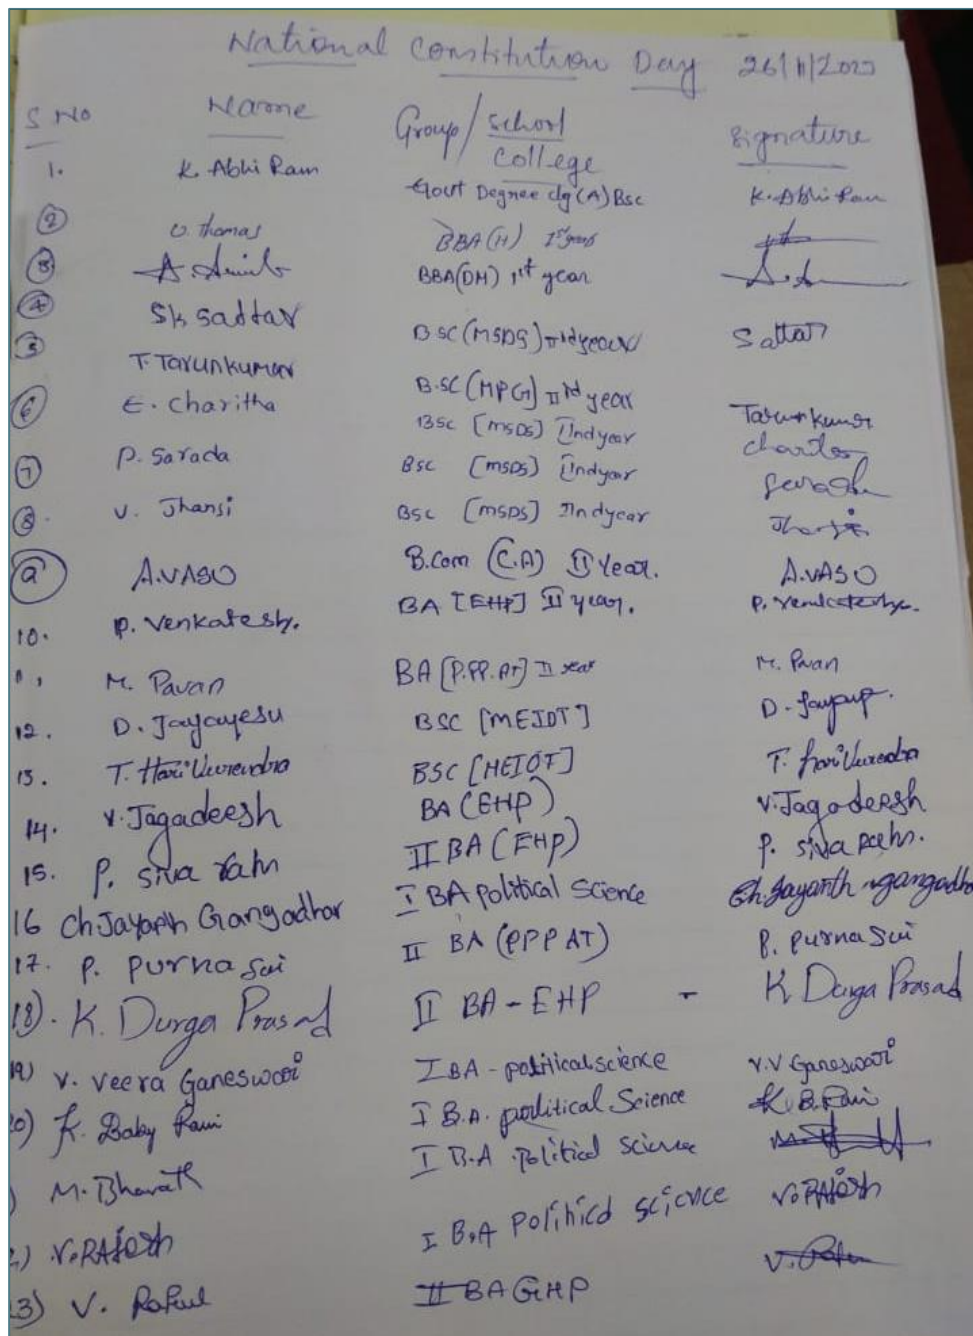 National Constitution Day 26/11/202
S No Name Group/School College Signature
1. K. Abhi Ram Govt Degree clg (A) Bsc K. Abhi Ram
2 U. Thomas BBA(H) Ist year
3 A. BBA(DM) 1st year A. A
4 Sk Sattar BSC (MSDS) IInd year Sattar
5 T. Tarunkumar B.SC (MPG) IInd year Tarunkumar
6 E. Charitha BSC [MSDS] IInd year
7 P. Sarada BSC [MSDS] IInd year
8. V. Jhansi BSC [MSDS] IInd year Jhansi
9 A.VASU B.Com (C.A) II Year. A.VASU
10. P. Venkatesh. BA [EHP] II year. P. Venkatesh.
11, M. Pavan BA [P.PP.AT] II year M. Pavan
12. D. Jayayesu BSC [MEIOT] D.
13. T. Hari BSC [MEIOT] T. Hari
14. V. Jagadeesh BA (EHP) V. Jagadeesh
15. P. Siva ram II BA (EHP) P. Siva Ram.
16 Ch Jayanth Gangadhar I BA political Science Ch. Jayanth gangadha
17. P. Purna Sai II BA (PPPAT) P. Purna Sai
18). K. Durga Prasad II BA - EHP - K Durga Prasad
19) V. Veera Ganeswari I BA - political science V.V Ganeswari
20) K. Baby Rani I B.A. political Science K. B. Rani
) M. Bharath I B.A political science
2) V. RAJESH I B.A political science V. RAJESH
23) V. Rahul II BA EHP V.